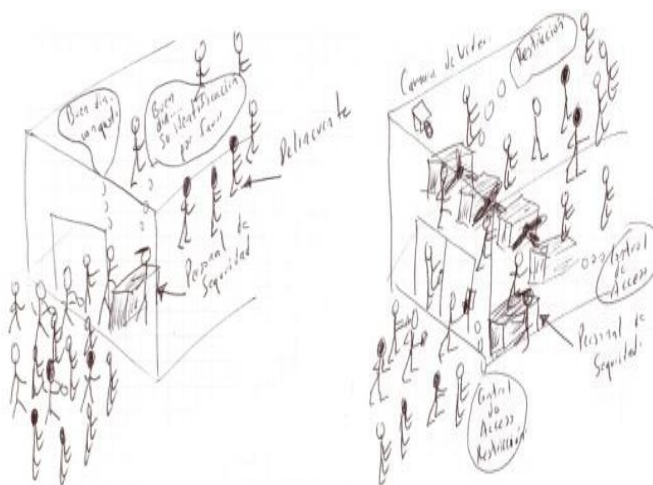 Buen dia,
Buen
dia.
Su identificación
por favor
Delincuente
Personal de
Seguridad
Camara de Video.
Restricción
Control
de
Access
Personal de
Seguridad.
Control
de
Access
Restricción